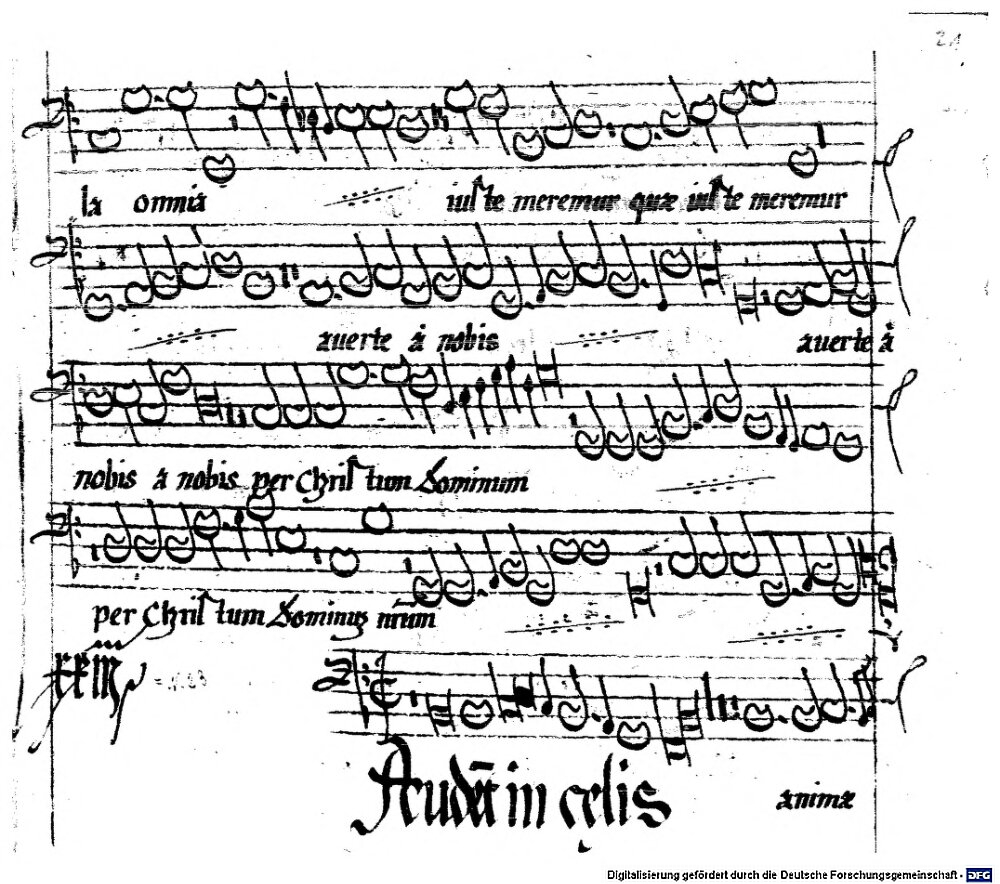 21
la omnia iuste meremur quæ iuste meremur
auerte à nobis auerte à
nobis à nobis per Chriſtum Dominum
per Chriſtum Dominum
Gaudēt in cęlis animæ
Digitalisierung gefördert durch die Deutsche Forschungsgemeinschaft - DFG